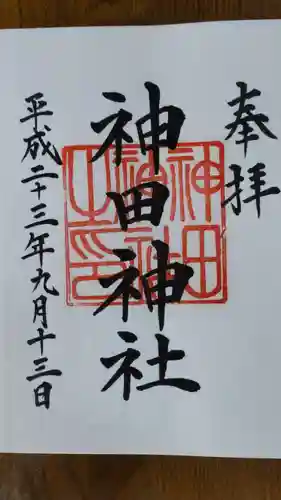 奉拝
神田神社
平成二十三年九月十三日
神田神社之印